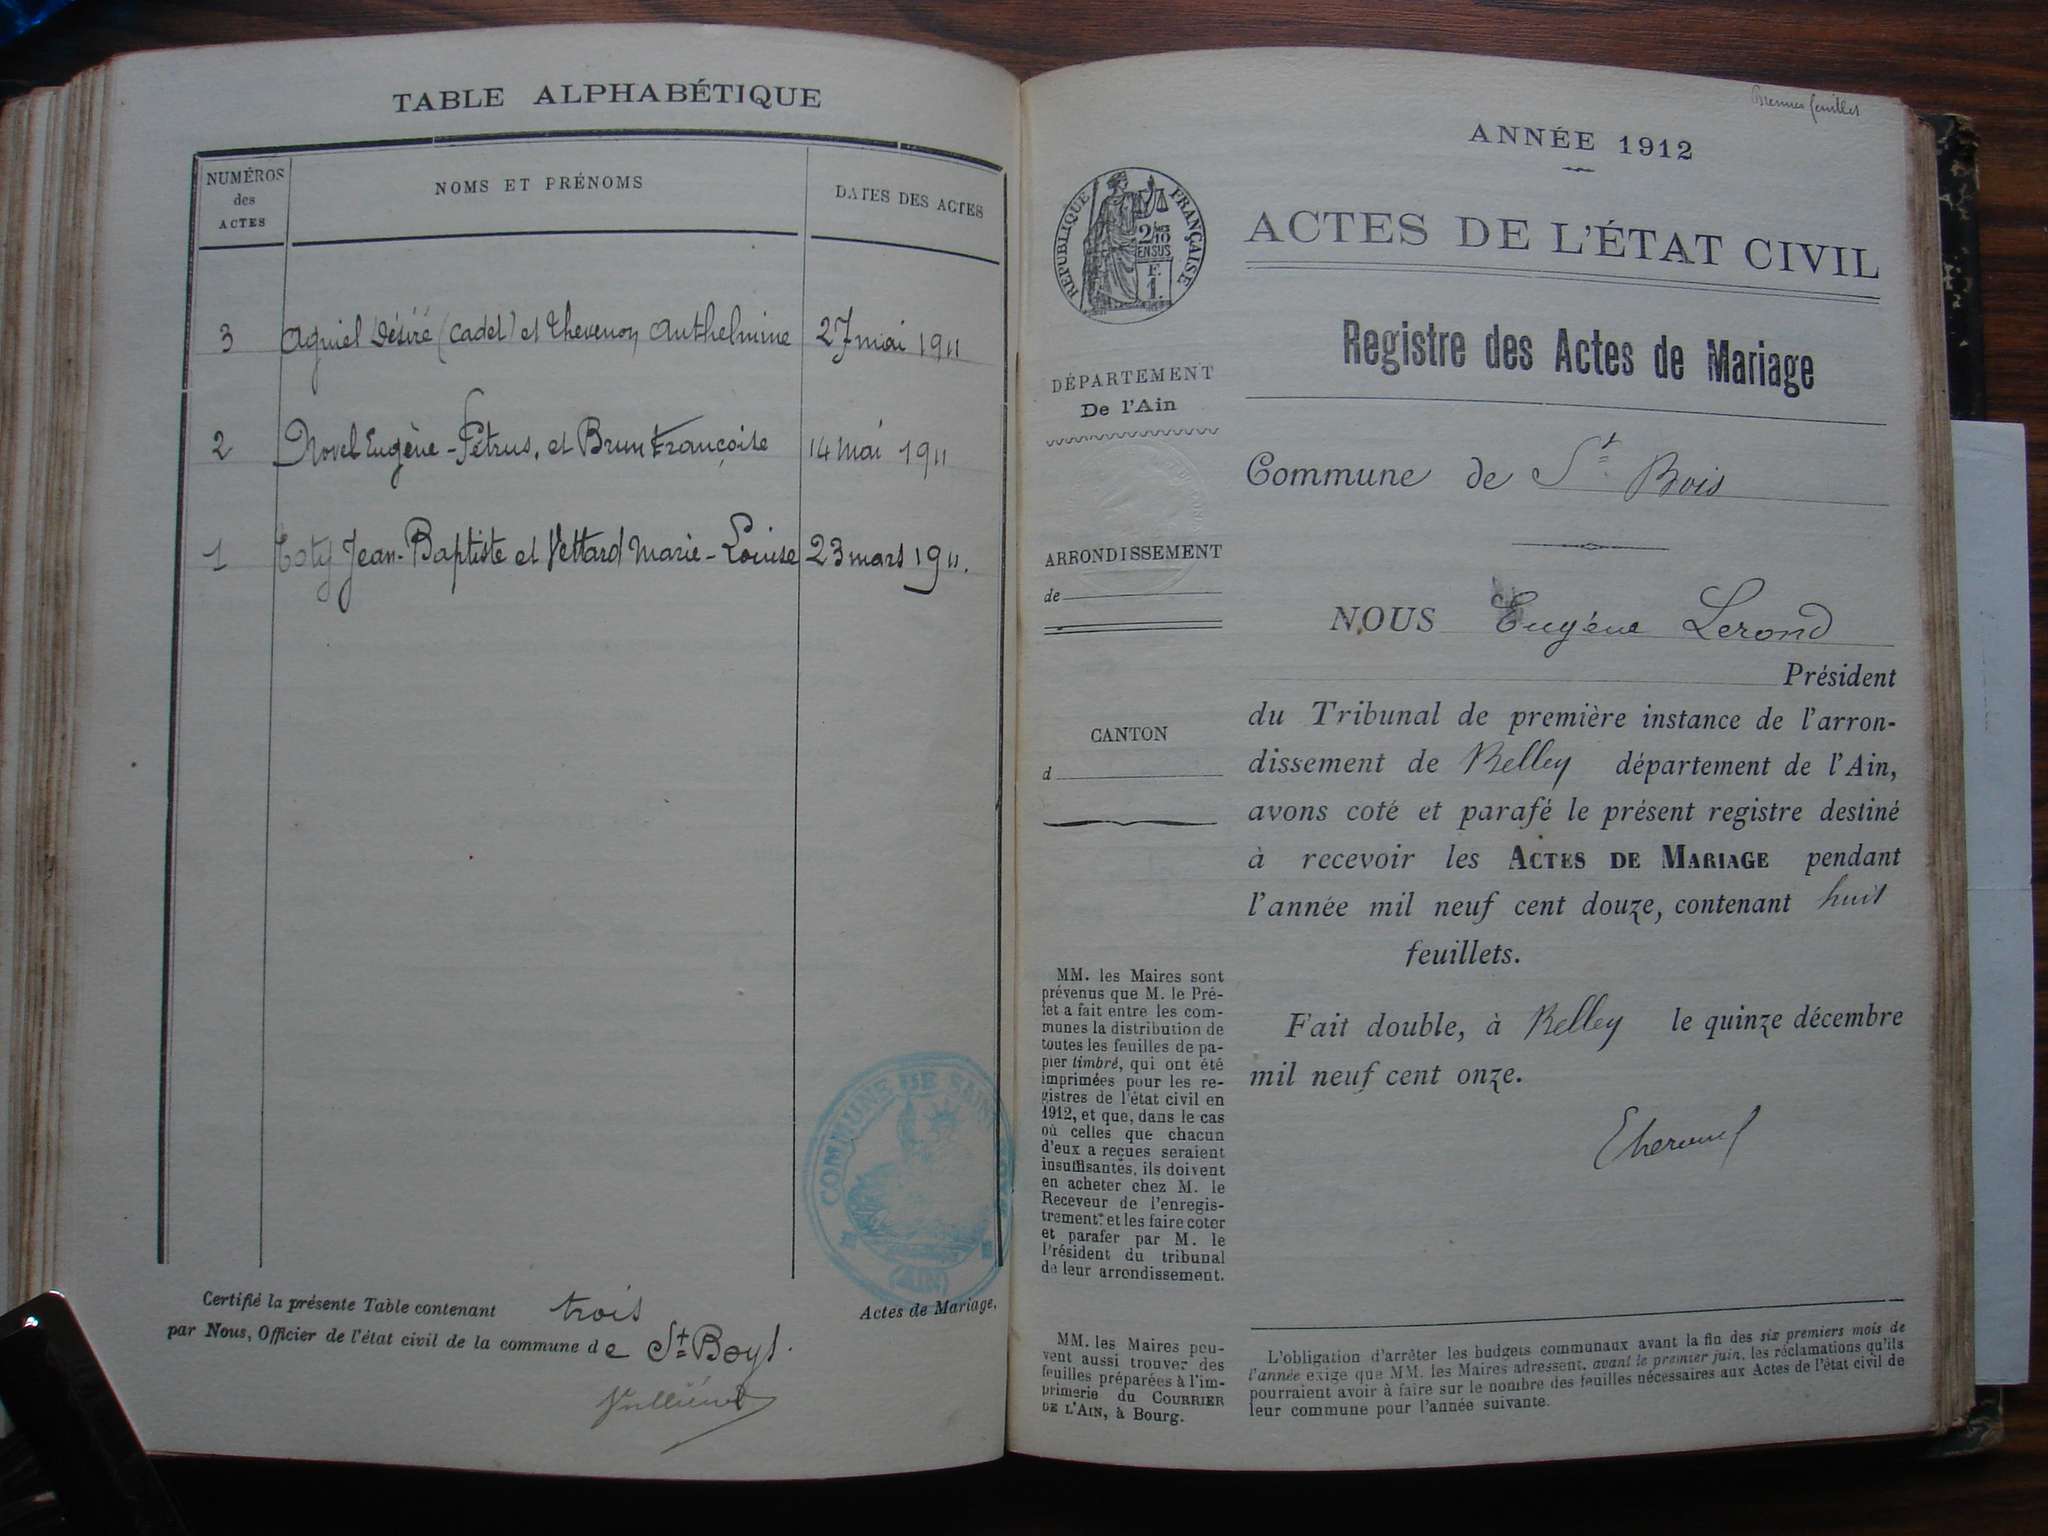 TABLE ALPHABÉTIQUE
NUMÉROS
des
ACTES
NOMS ET PRÉNOMS
DATES DES ACTES
3 Agniel Désiré (Cadet) et Thevenon Anthelmine 27 mai 1911
2 Novel Eugène-Pétrus, et Brun Françoise 14 mai 1911
1 Jean-Baptiste et Vettard Marie-Louise 23 mars 1911.
COMMUNE DE SAINT
(AIN)
Certifié la présente Table contenant trois Actes de Mariage,
par Nous, Officier de l'état civil de la commune de St Boys.
ANNÉE 1912
RÉPUBLIQUE FRANÇAISE
2/10
EN SUS
F.
1.
ACTES DE L'ÉTAT CIVIL
Registre des Actes de Mariage
DÉPARTEMENT
De l'Ain
Commune de St Bois
ARRONDISSEMENT
de
CANTON
d
NOUS Eugéne Lerond
Président
du Tribunal de première instance de l'arron-
dissement de Belley département de l'Ain,
avons coté et parafé le présent registre destiné
à recevoir les ACTES DE MARIAGE pendant
l'année mil neuf cent douze, contenant huit
feuillets.
Fait double, à Belley le quinze décembre
mil neuf cent onze.
MM. les Maires sont
prévenus que M. le Pré-
fet a fait entre les com-
munes la distribution de
toutes les feuilles de pa-
pier timbré, qui ont été
imprimées pour les re-
gistres de l'état civil en
1912, et que, dans le cas
où celles que chacun
d'eux a reçues seraient
insuffisantes, ils doivent
en acheter chez M. le
Receveur de l'enregis-
trement et les faire coter
et parafer par M. le
Président du tribunal
de leur arrondissement.
MM. les Maires peu-
vent aussi trouver des
feuilles préparées à l'im-
primerie du COURRIER
DE L'AIN, à Bourg.
L'obligation d'arrêter les budgets communaux avant la fin des six premiers mois de
l'année exige que MM. les Maires adressent, avant le premier juin, les réclamations qu'ils
pourraient avoir à faire sur le nombre des feuilles nécessaires aux Actes de l'état civil de
leur commune pour l'année suivante.